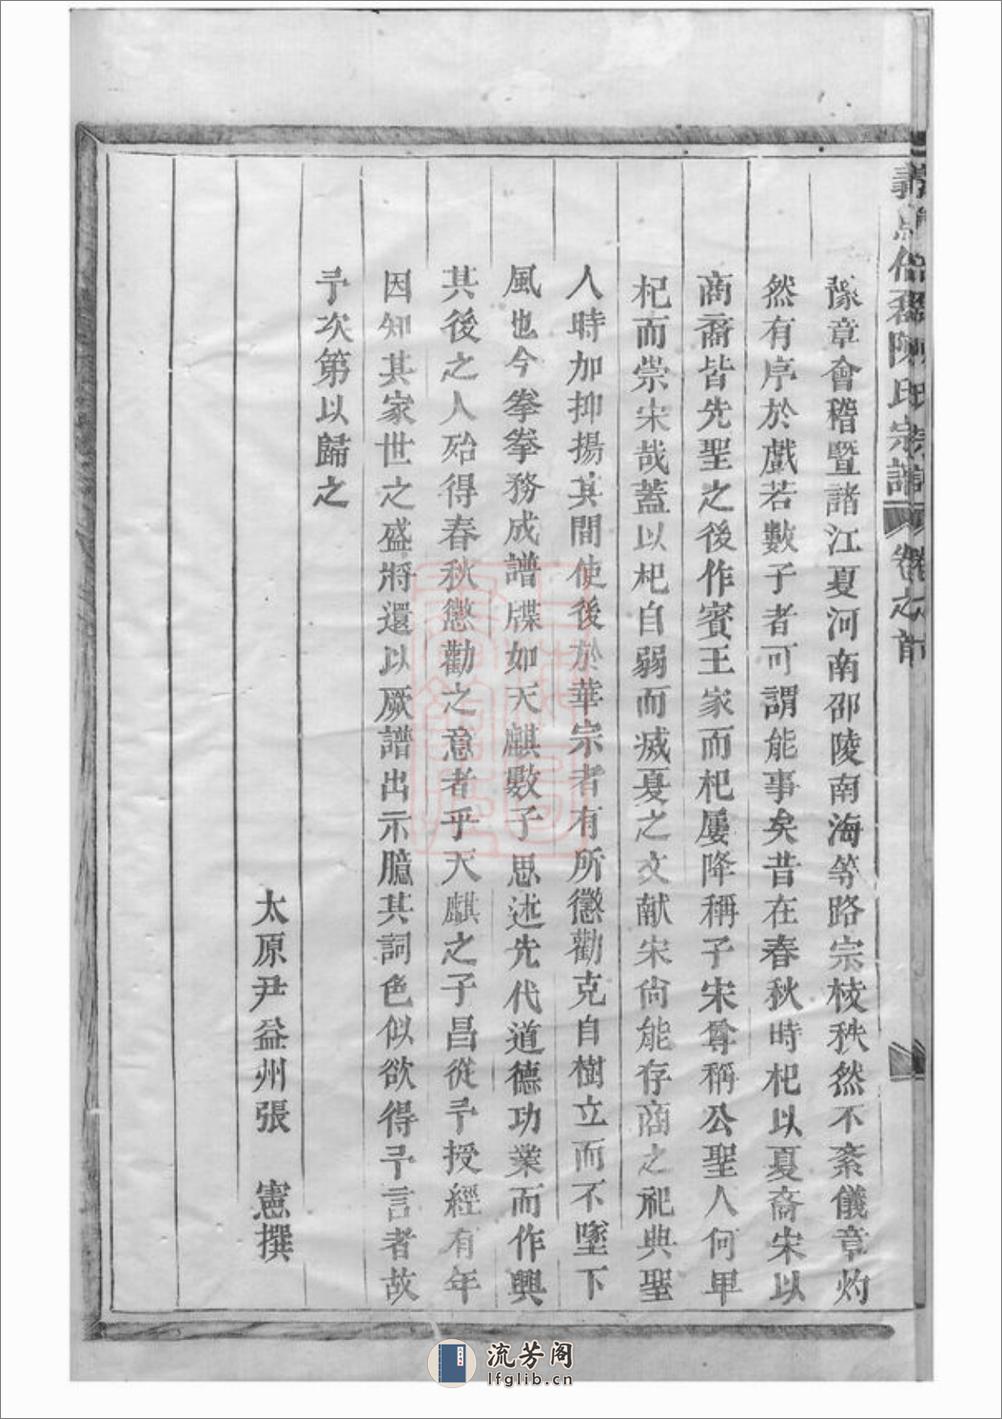 豫章會稽暨諸江夏河南邵陵南海等路宗枝秩然不紊儀章灼
然有序於戲若數子者可謂能事矣昔在春秋時杞以夏裔宋以
商裔皆先聖之後作賓王家而杞屢降稱子宋尊稱公聖人何卑
杞而崇宋哉蓋以杞自弱而烕夏之文献宋尙能存商之祀典聖
人時加抑揚其間使後於華宗者有所懲勸克自樹立而不墜下
風也今拳拳務成譜牒如天麒數子思述先代道德功業而作興
其後之人殆得春秋懲勸之意者乎天麒之子昌從予授經有年
因知其家世之盛將還以厥譜出示臆其詞色似欲得予言者故
予次第以歸之
太原尹益州張　憲撰
陳氏宗譜 卷之首
流芳阁
lfglib.cn